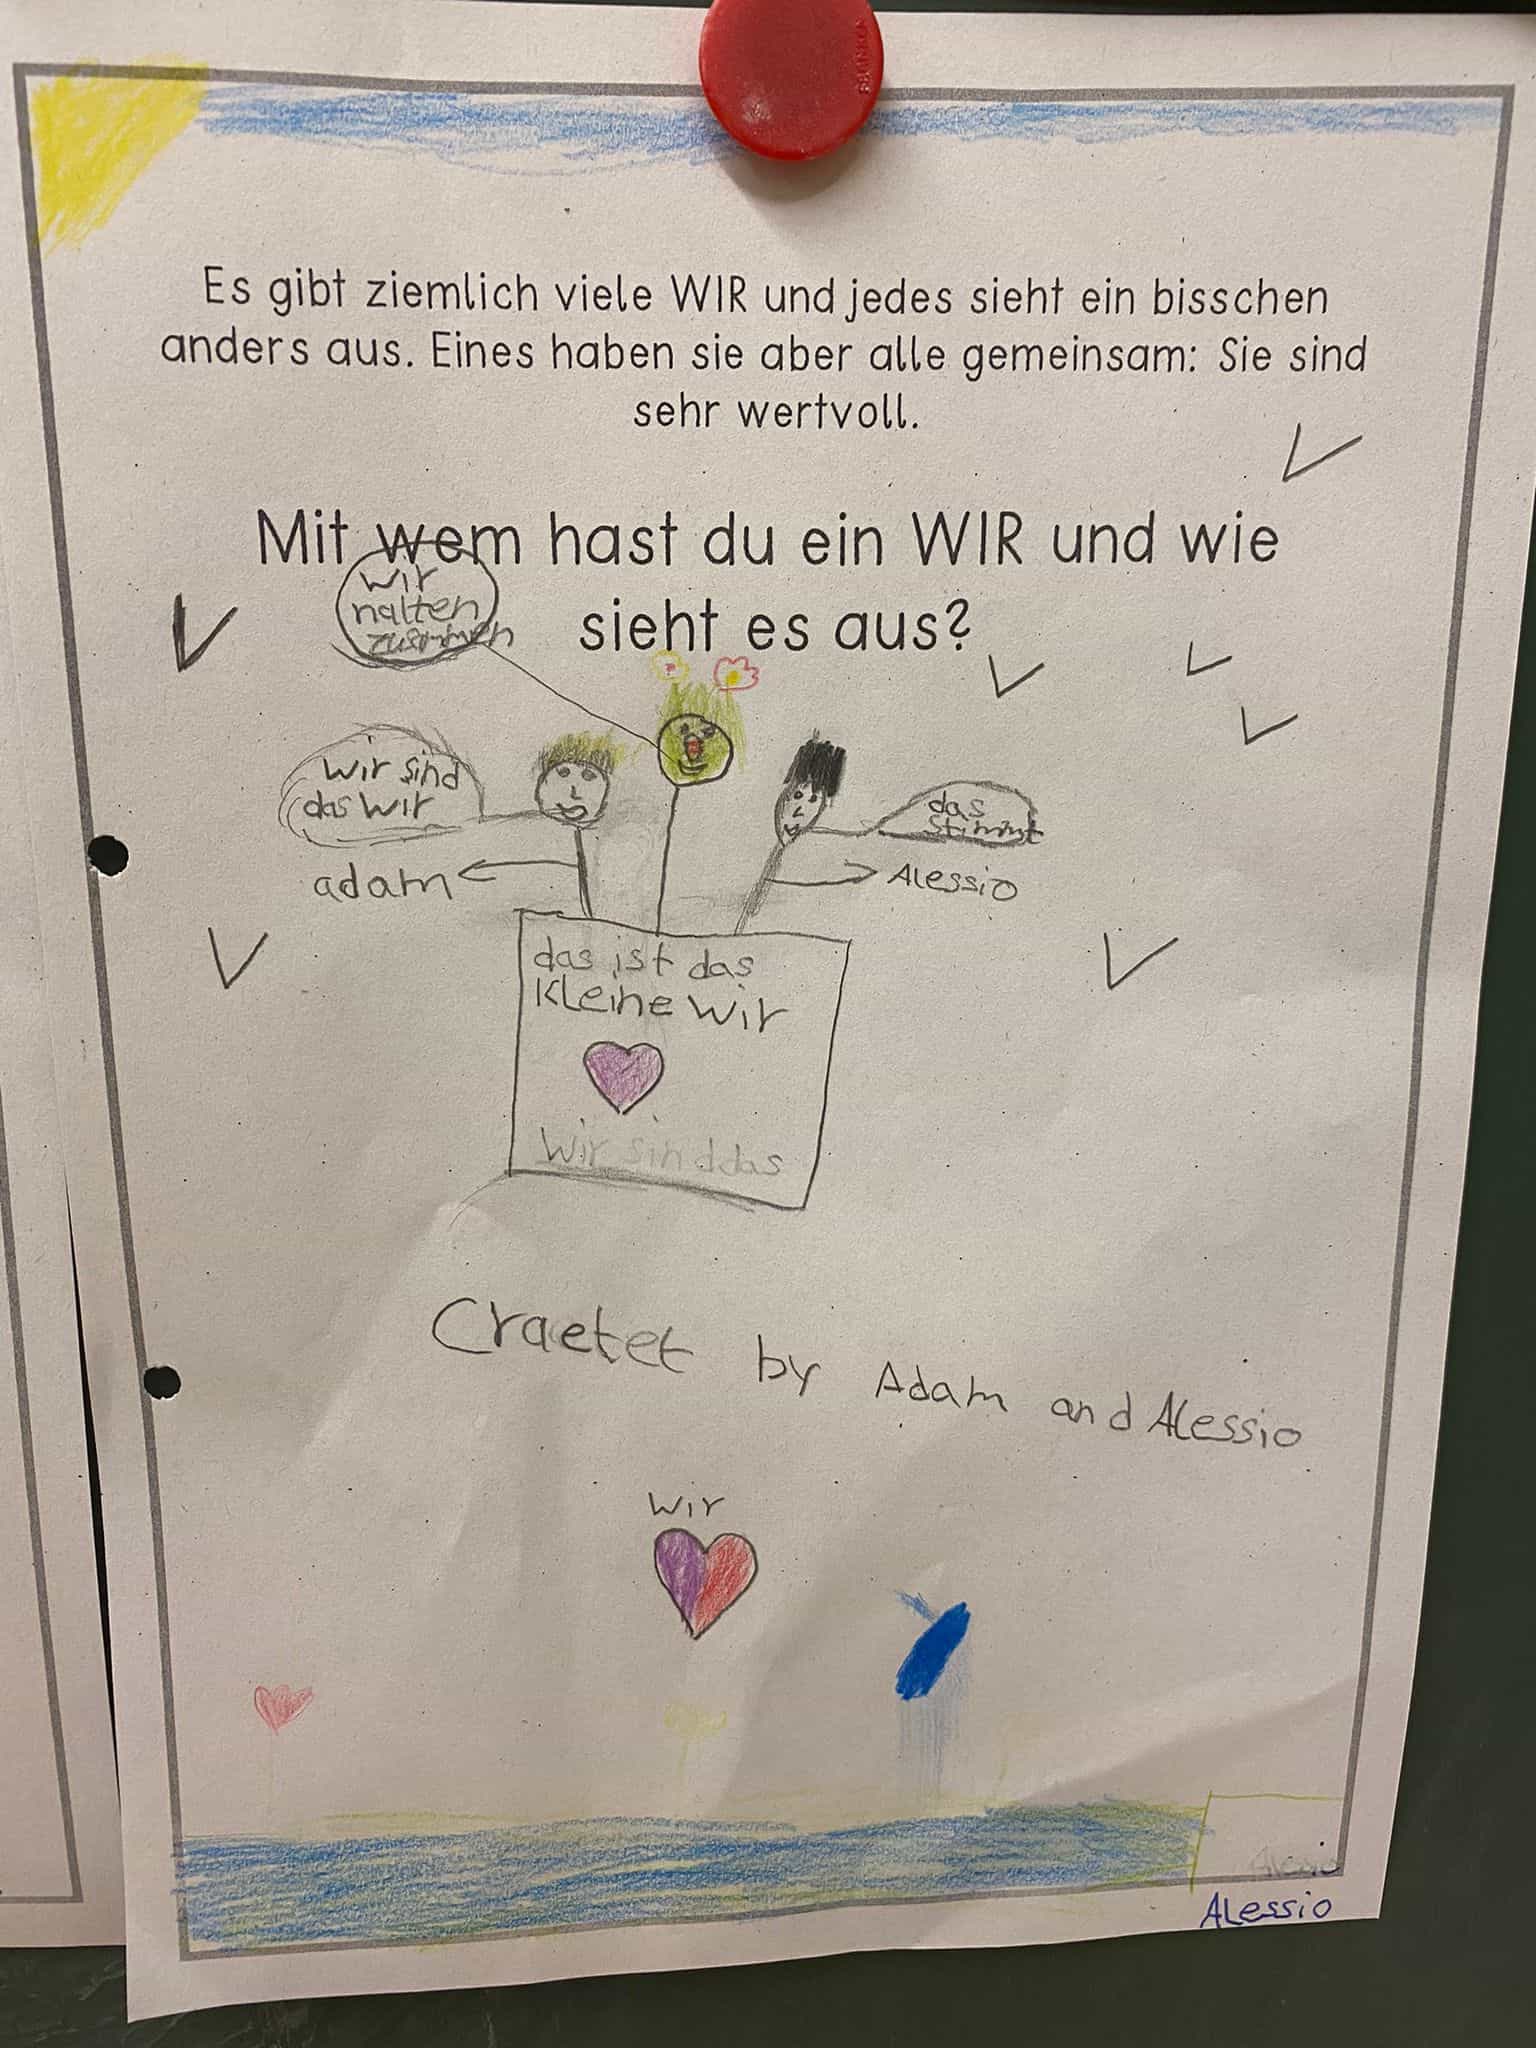 Es gibt ziemlich viele WIR und jedes sieht ein bisschen
anders aus. Eines haben sie aber alle gemeinsam: Sie sind
sehr wertvoll.
Mit wem hast du ein WIR und wie
sieht es aus?
wir
halten
zusammen
wir sind
das wir
das
stimmt
adam
Alessio
das ist das
kleine wir
wir sind das
Craetet by Adam and Alessio
wir
Alessio